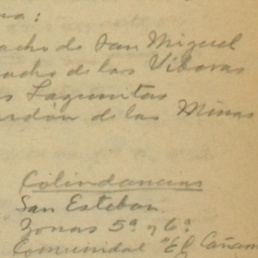 de San Miguel
de las Víboras
Lagunitas
de las Minas
Colindancias
San Esteban
Zonas 5ª y 6ª
Comunidad "El